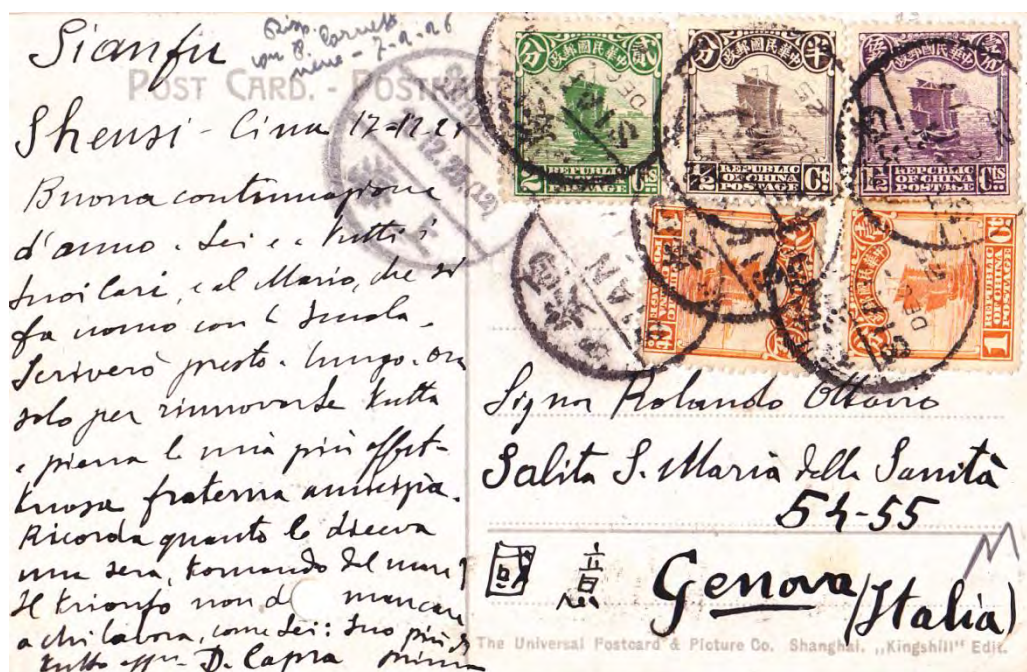 Sianfu
Risp.
7-2-26
POST CARD. - POSTKA
Shensi - Cina 17-12-25
Buona continuazione
d'anno a Lei e a tutti i
suoi cari, e al Mario, che si
fa uomo con la scuola.
Scriverò presto a lungo. ora
solo per rinnovarLe tutta
e piena la mia più affet-
tuosa fraterna amicizia.
Ricorda quanto le diceva
una sera, tornando dal mare?
Il trionfo non d mancare
a chi lavora, come Lei: Suo più di
tutto aff.mo D. Capra
貳 分
中華民國郵政
REPUBLIC
OF CHINA
POSTAGE
2 Cts
半 分
中華民國郵政
REPUBLIC
OF CHINA
POSTAGE
1/2 Ct.
中華民國郵政
REPUBLIC
OF CHINA
POSTAGE
1 1/2 Cts
REPUBLIC
OF CHINA
POSTAGE
1 Ct
中華民國郵政
REPUBLIC
OF CHINA
POSTAGE
1 Ct
12.25.(12)
Signor Rolando Ottavio
Salita S. Maria della Sanità
54-55
國 意 Genova
(Italia)
The Universal Postcard & Picture Co. Shanghai. „Kingshill" Edit.